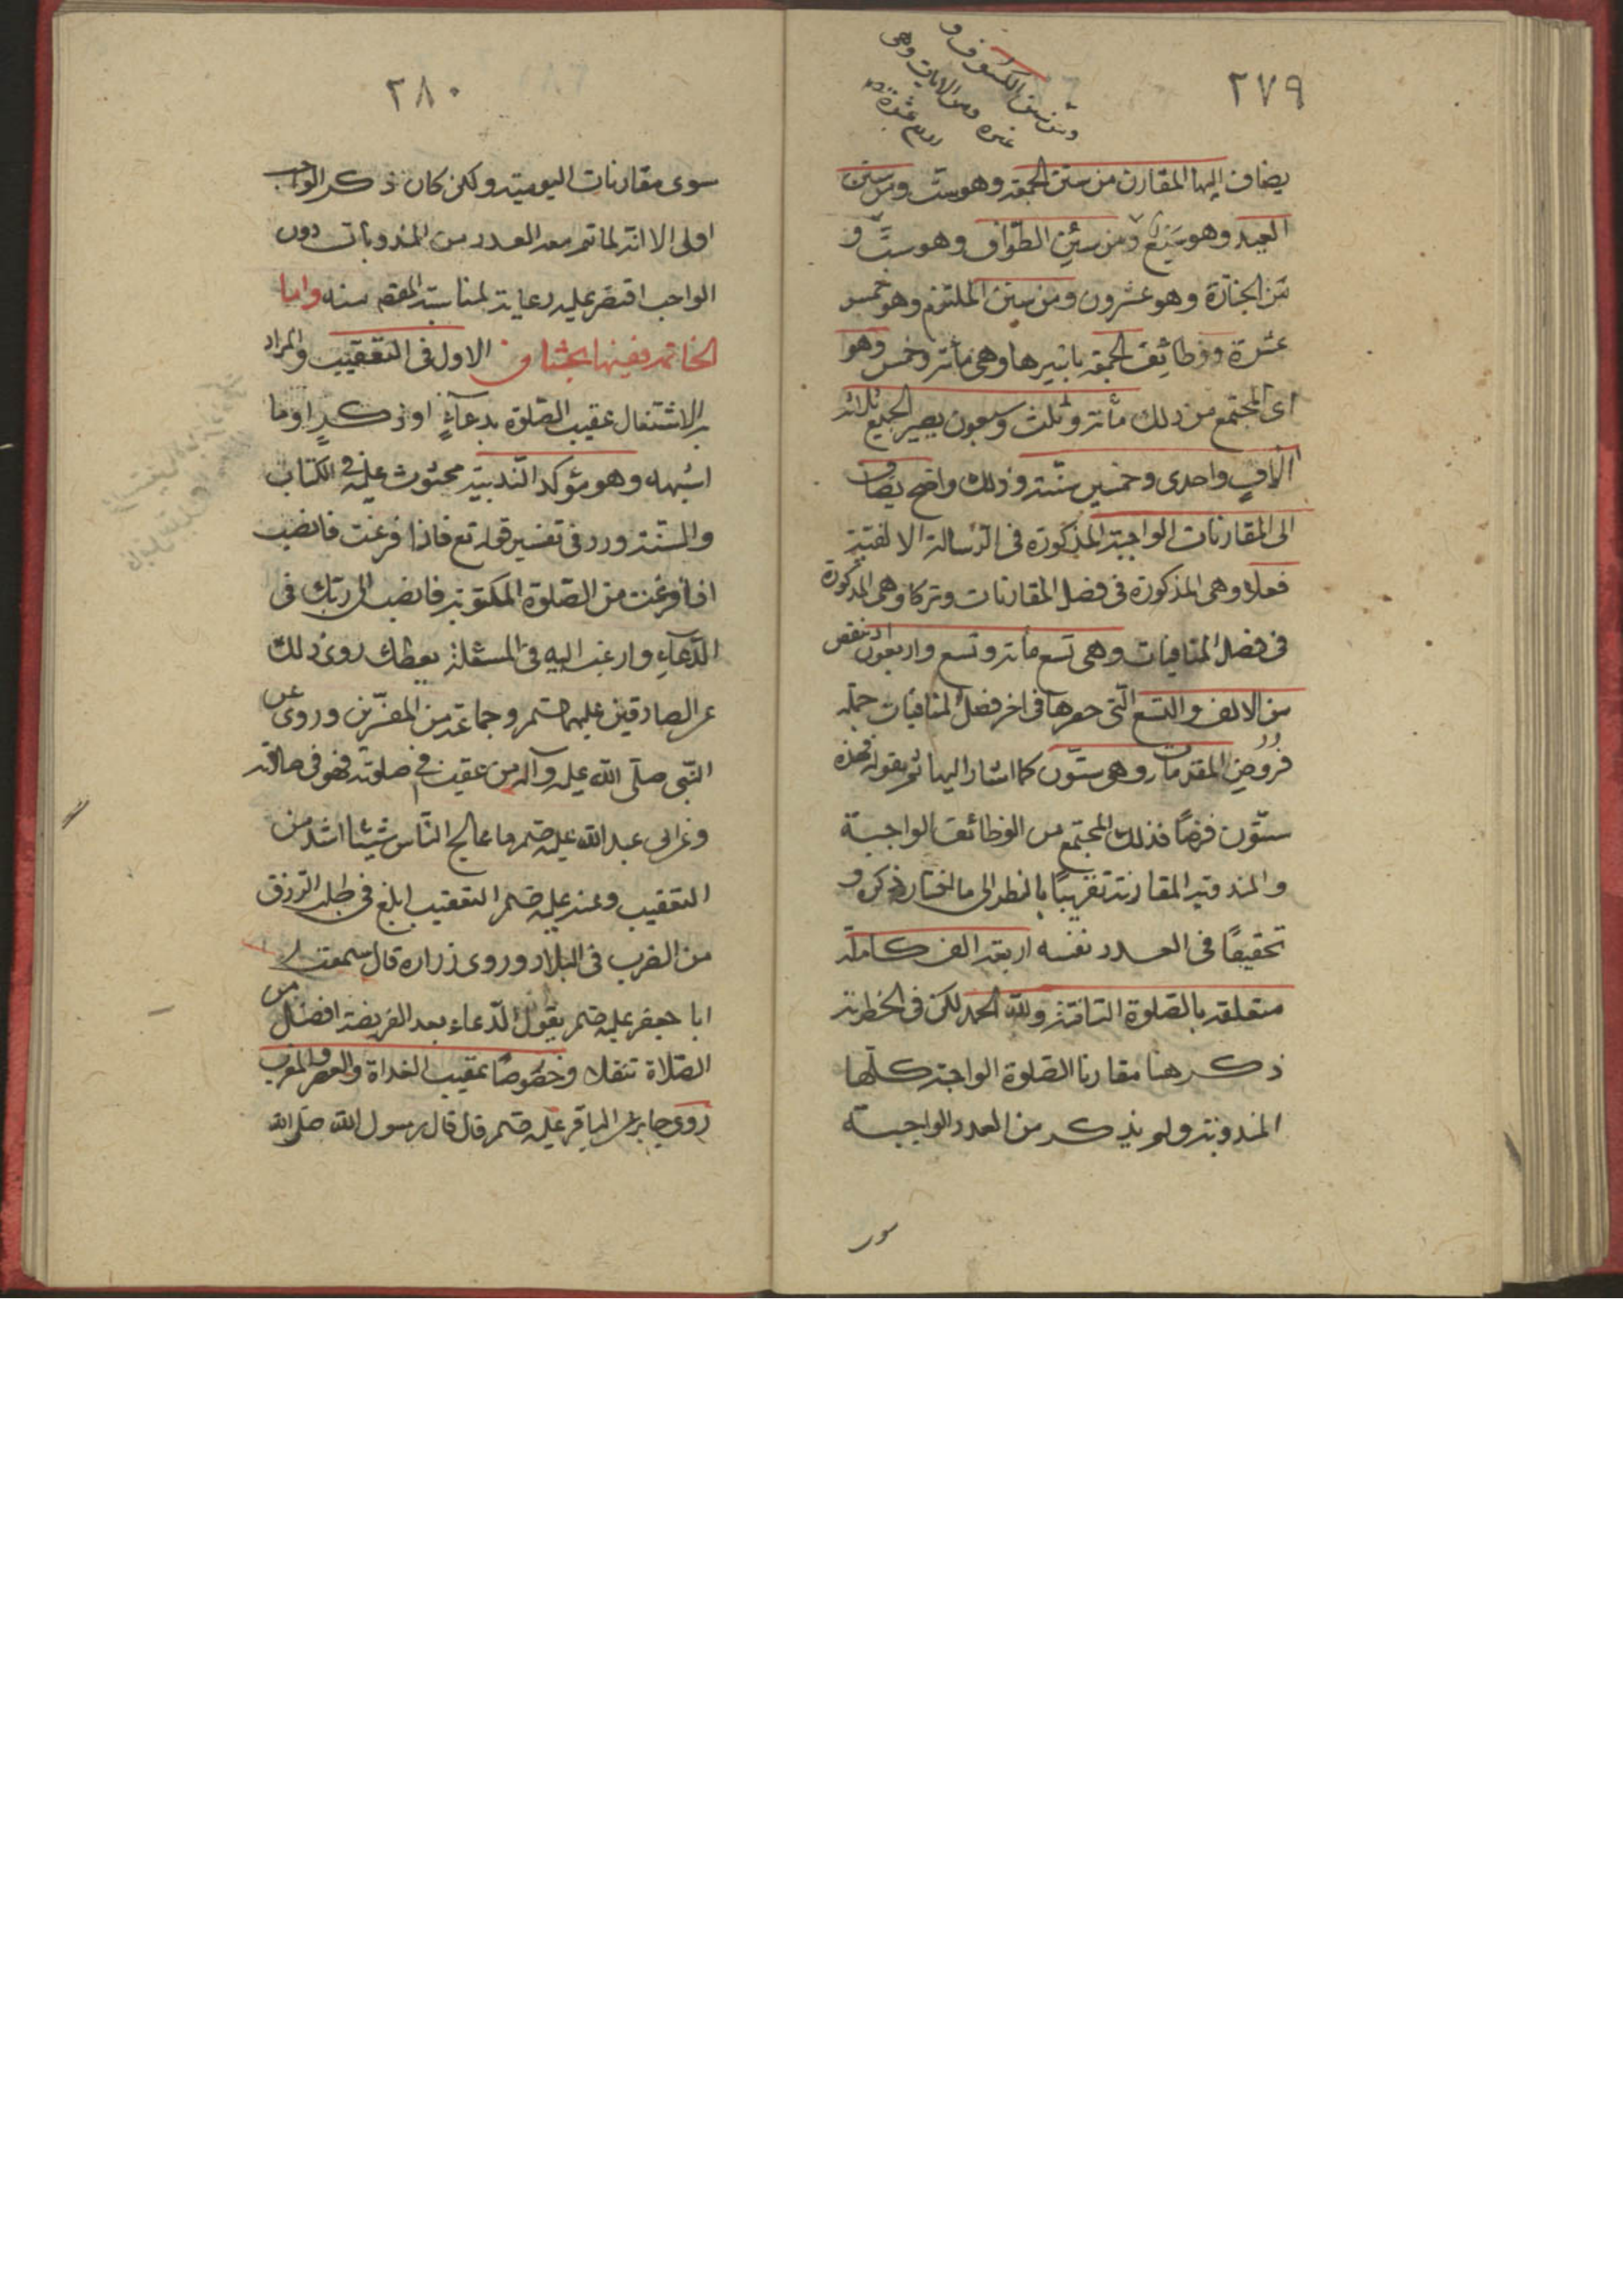 ٢٧٩
ومن سنن الكسوف و
غيره من الايات وهى
يضاف اليها المقارن من سنن الجمعة وهو ست ومن سنن
العيد وهو سبع ومن سنن الطواف وهو ست و
من الجنازة وهو عشرون ومن سنن الملتزم وهو خمس
عشرة ووظائف الجمعة باسرها وهى مأة وخمس وهو
اى المجتمع من ذلك مأة وثلث وسبعون يصير الجميع ثلاثة
الاف واحدى وخمسين سنة وذلك واضح يضاف
الى المقارنات الواجبة المذكورة فى الرسالة الالفية
فعلا وهى المذكورة فى فصل المقارنات وتركا وهى المذكورة
فى فصل المنافيات وهى تسع مأة وتسع واربعون اذ ينقص
من الالف والتسع التى حصرها فى اخر فصل المنافيات جملة
فروض المقدمات وهو ستون كما اشار اليها ثم بقوله فهذه
ستون فرضا فذلك المجتمع من الوظائف الواجبة
والمندوبة المقارنة تقريبًا بالنظر الى ما اختار ذكره و
تحقيقًا فى العدد نفسه اربعة الف كاملة
متعلقة بالصلوة التامة ولله الحمد لكن فى الخطبة
ذكر هنا مقارنا الصلوة الواجبة كلها
المندوبة ولم يذكر من العدد الواجبة
سوى
٢٨٠
سوى مقارنات اليومية ولكن كان ذكر الواجب
اولى الا انه لما تم معه العدد من المندوبات دون
الواجب اقتصر عليه رعاية لمناسبة المقصد منه واما
الخاتمة ففيها بحثان الاول فى التعقيب والمراد
به الاشتغال عقيب الصلوة بدعاءٍ او ذكرٍ او ما
اشبهه وهو مؤكد الندبية محثوث عليه فى الكتاب
والسنة ورد فى تفسير قوله تع فاذا فرغت فانصب
اذا فرغت من الصلوة المكتوبة فانصب الى ربك فى
الدعاء وارغب اليه فى المسئلة يعطك روى ذلك
عن الصادقين عليهما السلم وجماعة من المفسرين وروى عن
النبى صلى الله عليه وآله من عقب فى صلوته فهو فى صلوته
وعن ابى عبد الله عليه السلم ما عالج الناس شيئا اشد من
التعقيب وعنه عليه السلم التعقيب ابلغ فى طلب الرزق
من الضرب فى البلاد وروى زرارة قال سمعت
ابا جعفر عليه السلم يقول الدعاء بعد الفريضة افضل من
الصلاة تنفلا وخصوصًا عقيب الغداة والعصر والمغرب
روى جابر عن الباقر عليه السلم قال قال رسول الله صلى الله